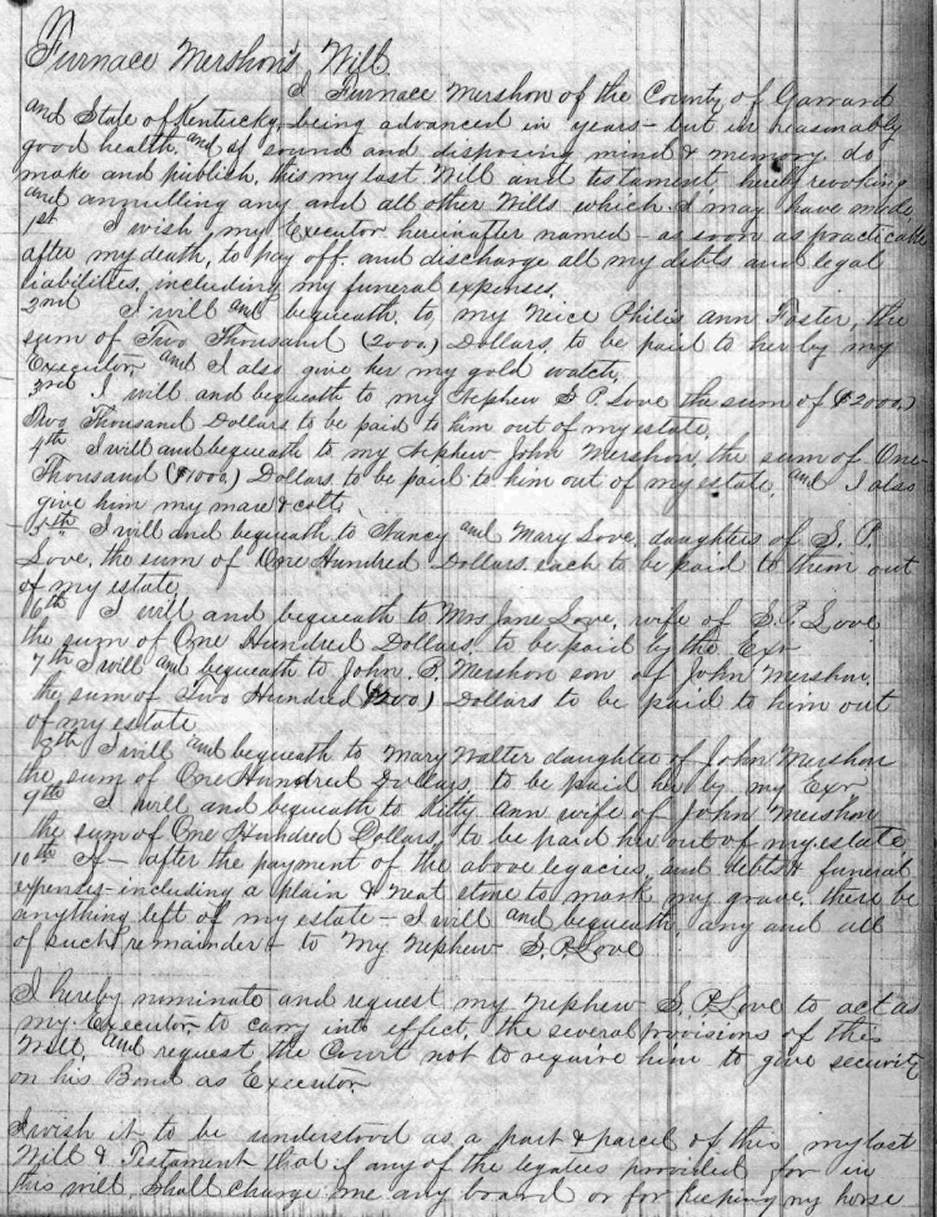 Furnace Mershon's Will
I Furnace Mershon of the County of Garrard
and State of Kentucky, being advanced in years - but in reasonably
good health, and of sound and disposing mind & memory. do
make and publish, this my last Will and testament, hereby revoking
and annulling any and all other Wills which I may have made,
1st I wish my Executor hereinafter named - as soon as practicable
after my death, to pay off. and discharge all my debts and legal
liabilities, including my funeral expenses.
2nd I will and bequeath, to, my Neice Philis ann Foster, the
sum of Two Thousand (2000.) Dollars, to be paid to her by my
Executor, and I also give her my gold watch,
3rd I will and bequeath to my Nephew S P. Love the sum of ($2000.)
Two Thousand Dollars to be paid to him out of my estate,
4th I will and bequeath to my Nephew John Mershon, the sum of One
Thousand ($1000.) Dollars to be paid to him out of my estate, and I also
give him my mare & colt,
5th I will and bequeath to Nancy and Mary Love, daughters of S. P.
Love, the sum of One Hundred Dollars each to be paid to them out
of my estate.
6th I will and bequeath to Mrs Jane Love, wife of S. P. Love
the sum of One Hundred Dollars, to be paid by the Exr
7th I will and bequeath to John. B. Mershon son of John Mershon.
the sum of Two Hundred (200.) Dollars to be paid to him out
of my estate
8th I will and bequeath to Mary Walter daughter of John Mershon
the sum of One Hundred Dollars, to be paid her by my Exr
9th I will and bequeath to Kitty Ann wife of John Mershon
the sum of One Hundred Dollars, to be paid her out of my estate
10th If - after the payment of the above legacies, and debts & funeral
expenses - including a plain & neat stone to mark my grave, there be
anything left of my estate - I will and bequeath, any and all
of such remainder to My Nephew S. P. Love
I hereby nominate and request my Nephew S. P. Love to act as
my Executor, to carry into effect, the several provisions of this
Will, and request the Court not to require him to give security
on his Bond as Executor
I wish it to be understood as a part & parcel of this my last
Will & Testament that if any of the legatees provided for in
this will, shall charge me any board or for keeping my horse